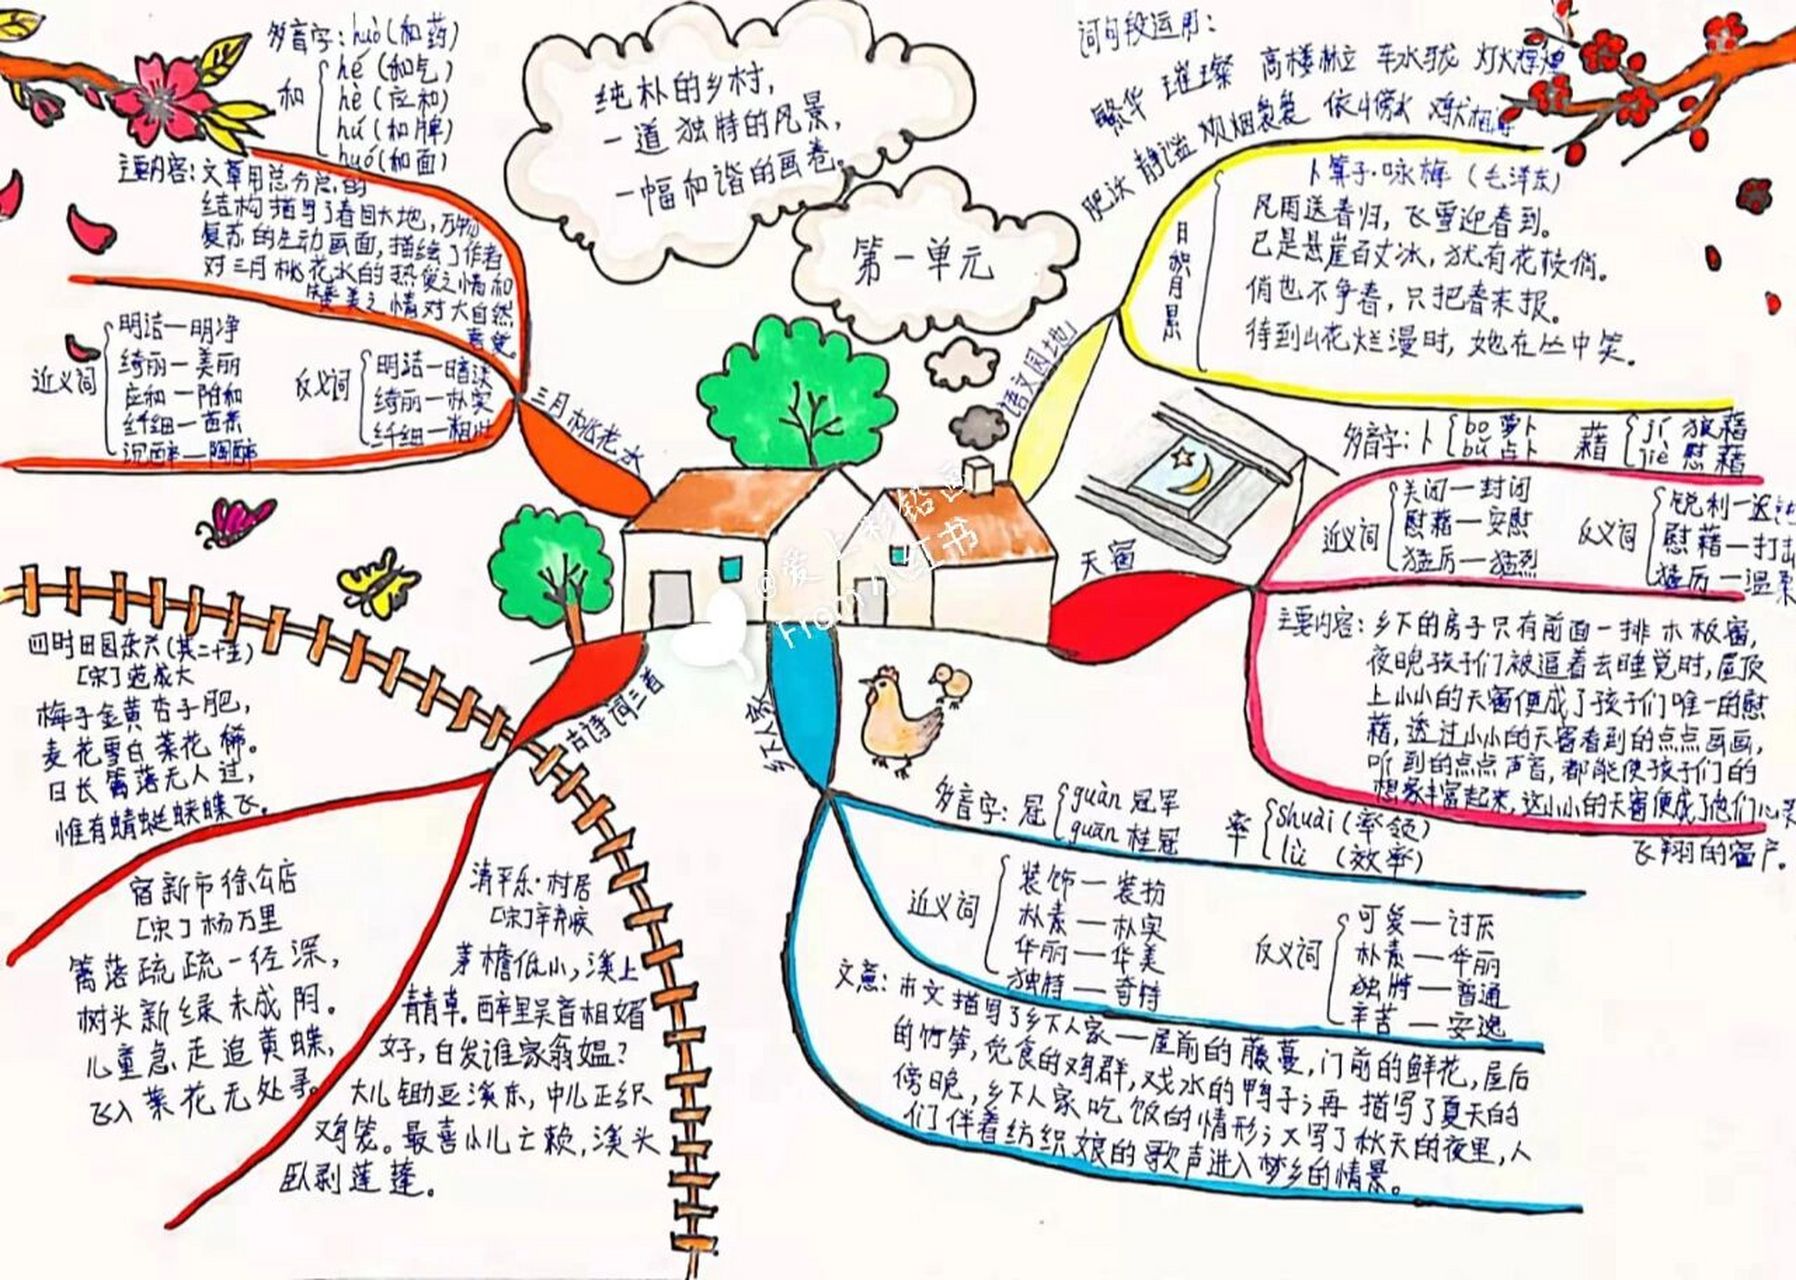 多音字:huò(和药)
和
hé(和气)
hè(应和)
hú(和牌)
huó(和面)
主要内容:文章用总分总的
结构描写了春回大地,万物
复苏的生动画面,描绘了作者
对三月桃花水的热爱之情和
赞美之情对大自然
喜爱。
近义词
明洁—明净
绮丽—美丽
应和—附和
纤细—
沉醉—陶醉
反义词
明洁—暗淡
绮丽—朴实
纤细—粗壮
三月桃花水
纯朴的乡村,
一道独特的风景,
一幅和谐的画卷。
第一单元
词句段运用:
繁华 璀璨 高楼林立 车水马龙 灯火辉煌
肥沃 静谧 炊烟袅袅 依山傍水 鸡犬相闻
语文园地
日积月累
卜算子·咏梅(毛泽东)
风雨送春归,飞雪迎春到。
已是悬崖百丈冰,犹有花枝俏。
俏也不争春,只把春来报。
待到山花烂漫时,她在丛中笑。
天窗
多音字:卜
bo 萝卜
bǔ 占卜
藉
jí 狼藉
jiè 慰藉
近义词
关闭—封闭
慰藉—安慰
猛厉—猛烈
反义词
锐利—迟钝
慰藉—打击
猛厉—温柔
主要内容:乡下的房子只有前面一排木板窗,
夜晚孩子们被逼着去睡觉时,屋顶
上小小的天窗便成了孩子们唯一的慰
藉,透过小小的天窗看到的点点画画,
听到的点点声音,都能使孩子们的
想象丰富起来,这小小的天窗便成了他们心灵
飞翔的窗户。
@爱上彩铅画
From小红书
古诗词三首
四时田园杂兴(其二十五)
[宋]范成大
梅子金黄杏子肥,
麦花雪白菜花稀。
日长篱落无人过,
惟有蜻蜓蛱蝶飞。
宿新市徐公店
[宋]杨万里
篱落疏疏一径深,
树头新绿未成阴。
儿童急走追黄蝶,
飞入菜花无处寻。
清平乐·村居
[宋]辛弃疾
茅檐低小,溪上
青青草。醉里吴音相媚
好,白发谁家翁媪?
大儿锄豆溪东,中儿正织
鸡笼。最喜小儿亡赖,溪头
卧剥莲蓬。
乡下人家
多音字:冠
guàn 冠军
guān 桂冠
率
shuài(率领)
lǜ (效率)
近义词
装饰—装扮
朴素—朴实
华丽—华美
独特—奇特
反义词
可爱—讨厌
朴素—华丽
独特—普通
辛苦—安逸
文意:本文描写了乡下人家—屋前的藤蔓,门前的鲜花,屋后
的竹笋,觅食的鸡群,戏水的鸭子;再描写了夏天的
傍晚,乡下人家吃饭的情形;又写了秋天的夜里,人
们伴着纺织娘的歌声进入梦乡的情景。